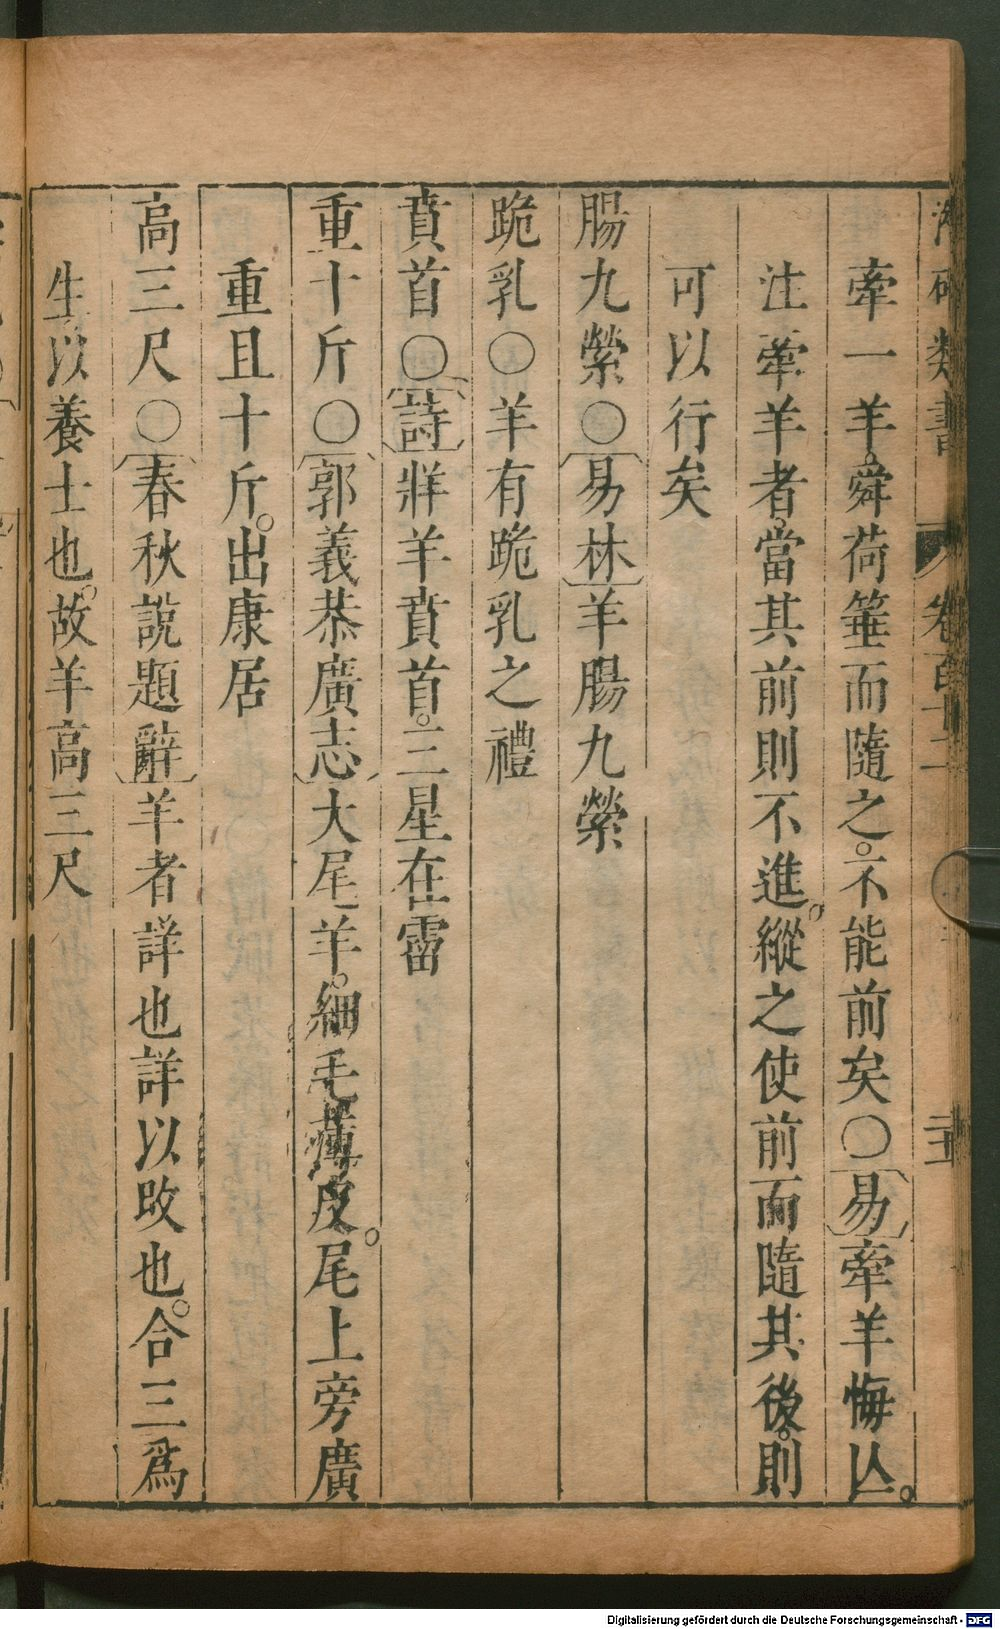 類書 卷百十二 二十五
牽一羊舜荷箠而隨之不能前矣○易牽羊悔亾
注牽羊者當其前則不進縱之使前而隨其後則
可以行矣
腸九縈○易林羊腸九縈
跪乳○羊有跪乳之禮
賁首○詩牂羊賁首三星在霤
重十斤○郭義恭廣志大尾羊細毛薄皮尾上旁廣
重且十斤出康居
高三尺○春秋說題辭羊者詳也詳以攺也合三為
生以養士也故羊高三尺
Digitalisierung gefördert durch die Deutsche Forschungsgemeinschaft - DFG